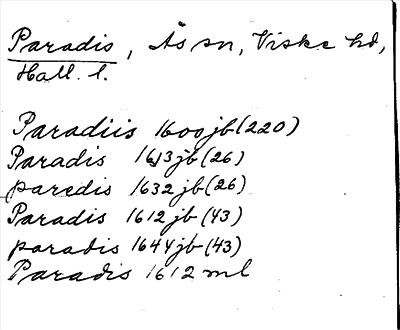 Paradis, Ås sn, Viske hd,
Hall. l.
Paradiis 1600jb(220)
Paradis 1613jb(26)
paredis 1632jb(26)
Paradis 1612jb(43)
paradis 1644jb(43)
Paradis 1612 ml